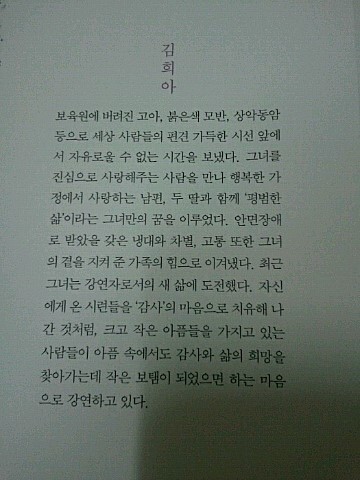 김희아
보육원에 버려진 고아, 붉은색 모반, 상악동암
등으로 세상 사람들의 편견 가득한 시선 앞에
서 자유로울 수 없는 시간을 보냈다. 그녀를
진심으로 사랑해주는 사람을 만나 행복한 가
정에서 사랑하는 남편, 두 딸과 함께 ‘평범한
삶’이라는 그녀만의 꿈을 이루었다. 안면장애
로 받았을 갖은 냉대와 차별, 고통 또한 그녀
의 곁을 지켜 준 가족의 힘으로 이겨냈다. 최근
그녀는 강연자로서의 새 삶에 도전했다. 자신
에게 온 시련들을 ‘감사’의 마음으로 치유해 나
간 것처럼, 크고 작은 아픔들을 가지고 있는
사람들이 아픔 속에서도 감사와 삶의 희망을
찾아가는데 작은 보탬이 되었으면 하는 마음
으로 강연하고 있다.